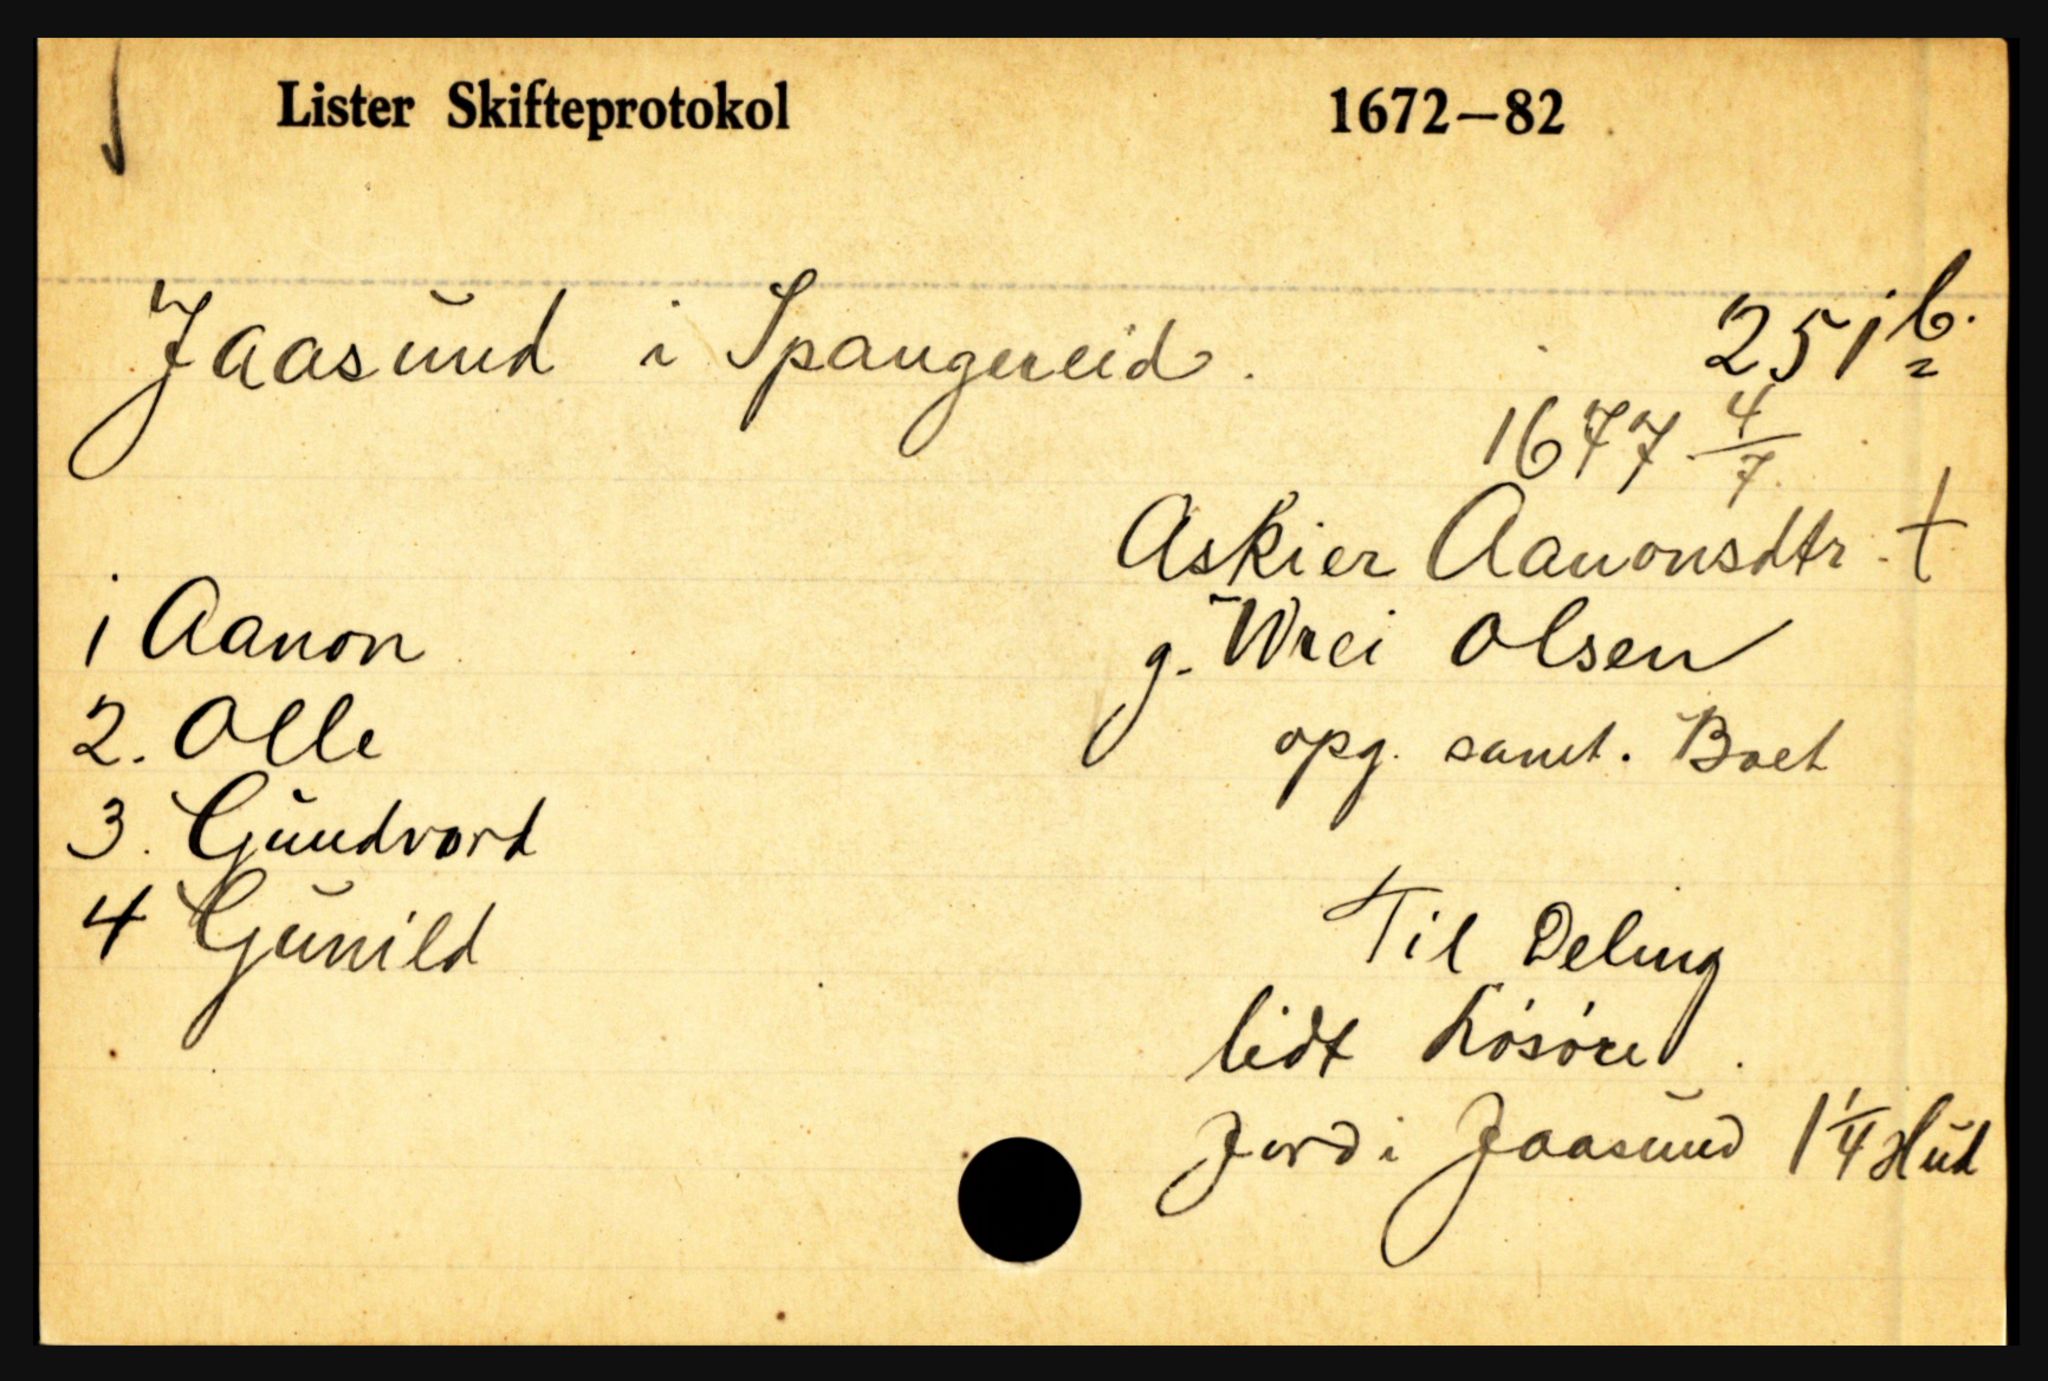 Lister Skifteprotokol 1672—82
Jaasund i Spangereid. 251 b.
1677 4/7
Askier Aanonsdtr. †
g. Wrei Olsen
opg. samt. Boet
1 Aanon
2. Olle
3. Gundvord
4 Gunild
Til Deling
lidt Lösöre.
Jord i Jaasund 1 1/4 Hud